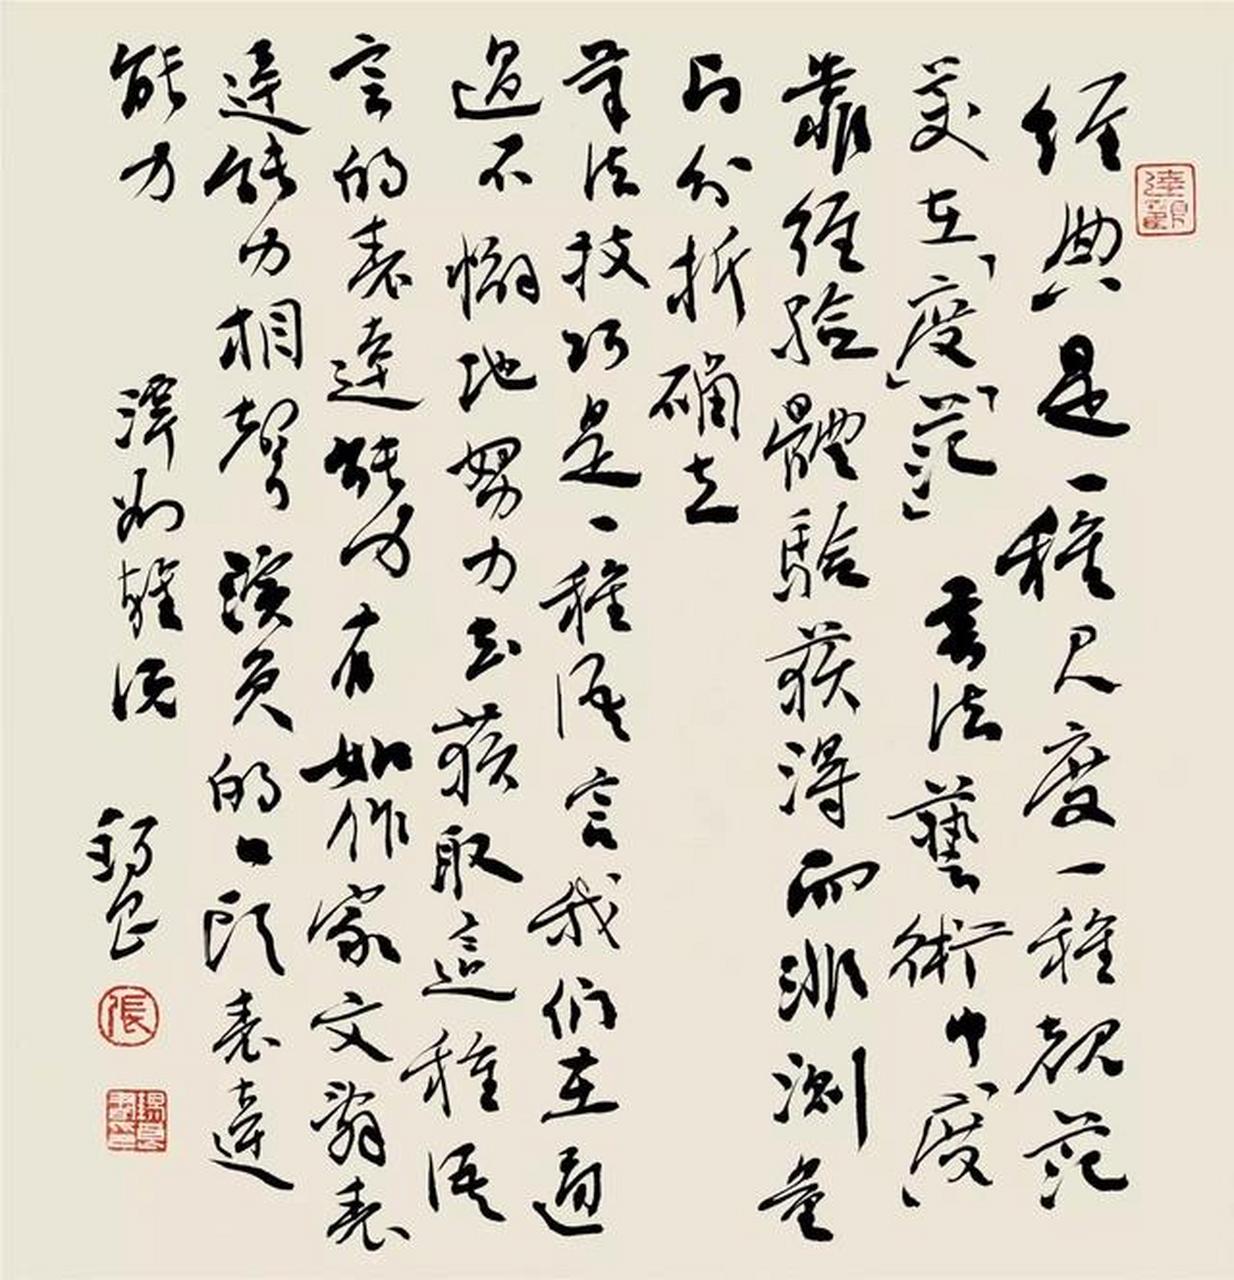 經典是一種尺度一種規范
美在「度」「范」書法藝術中「度」
靠經驗體驗獲得而非測量
分析確立
筆法技巧是一種語言我们在通
過不懈地努力去獲取這種語
言的表達能力有如作家文辭表
達能力相聲演員的口頭表達
能力 潭州雜説 錫良
張